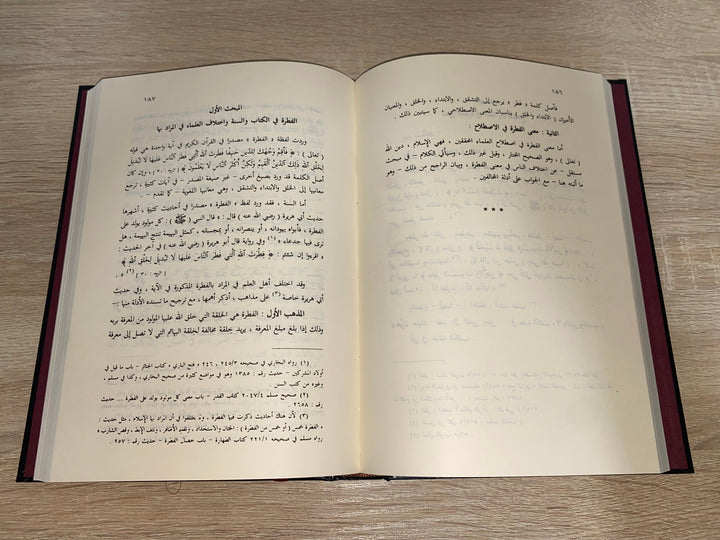 ١٨٦
فأصل كلمة « فطر » يرجع إلى التشقق ، والابتداء ، والخلق ، والمعنيان
الأخيران ( الابتداء ، الخلق ) يناسبان المعنى الاصطلاحي ، كما سيتبين ذلك .
الثانية : معنى الفطرة في الاصطلاح :
أما معنى الفطرة في اصطلاح العلماء المحققين ، فهي الإسلام ، دين الله
( تعالى ) ، وهو الصحيح المختار ، وقيل غير ذلك ، وسيأتي الكلام – في مبحث
مستقل – عن اختلاف الناس في معنى الفطرة ، وبيان الراجح من ذلك – وهو
ما أثبته هنا – مع الجواب على أدلة المخالفين .
***
١٨٧
المبحث الأول
الفطرة في الكتاب والسنة واختلاف العلماء في المراد بها
وردت لفظة « الفطرة » مصدرا في القرآن الكريم في آية واحدة هي قوله
( تعالى ) : ﴿ فَأَقِمْ وَجْهَكَ لِلدِّينِ حَنِيفًا فِطْرَتَ اللَّهِ الَّتِي فَطَرَ النَّاسَ عَلَيْهَا لَا تَبْدِيلَ
لِخَلْقِ اللَّهِ ذَلِكَ الدِّينُ الْقَيِّمُ وَلَكِنَّ أَكْثَرَ النَّاسِ لَا يَعْلَمُونَ ﴾ [ الروم : ٣٠ ] ، وإن كان
أصل الكلمة قد ورد بصيغ أخرى – غير صيغة المصدر – في آيات كثيرة ترجع
معانيها إلى الخلق والابتداء والتشقق ، وهي معانيها اللغوية – كما تقدم – .
أما السنة ، فقد ورد لفظ « الفطرة » مصدرا في أحاديث كثيرة ، أشهرها
حديث أبي هريرة ( رضي الله عنه ) قال : قال النبي ( ﷺ ) : كل مولود يولد على
الفطرة ، فأبواه يهودانه ، أو ينصرانه ، أو يمجسانه ، كمثل البهيمة تنتج البهيمة ، هل
ترى فيها جدعاء » (١) وفي رواية قال أبو هريرة ( رضي الله عنه ) في آخر الحديث :
« اقرءوا إن شئتم : ﴿ فِطْرَتَ اللَّهِ الَّتِي فَطَرَ النَّاسَ عَلَيْهَا لَا تَبْدِيلَ لِخَلْقِ اللَّهِ ﴾
[ الروم : ٣٠ ] (٢) » .
وقد اختلف أهل العلم في المراد بالفطرة المذكورة في الآية ، وفي حديث
أبي هريرة خاصة (٣) على مذاهب ، أذكر أهمها ، مع ترجيح ما تسنده الأدلة منها :
المذهب الأول : الفطرة هي الخلقة التي خلق الله عليها المولود من المعرفة بربه
وذلك إذا بلغ مبلغ المعرفة ، يريد خلقة مخالفة لخلقة البهائم التي لا تصل إلى معرفة
(١) رواه البخاري في صحيحه ٢٤٥/٣ ، ٢٤٦ « فتح الباري » كتاب الجنائز – باب ما قيل في
أولاد المشركين – حديث رقم : ١٣٨٥ وهو في مواضع كثيرة من صحيح البخاري ، وكذا في مسلم ،
وغيره من كتب السنن .
(٢) صحيح مسلم ٢٠٤٧/٤ كتاب القدر – باب معنى كل مولود يولد على الفطرة ... حديث
رقم : ٢٦٥٨ .
(٣) لأن هناك أحاديث ذكرت فيها الفطرة ، ولم يختلفوا في أن المراد بها الإسلام ، مثل حديث :
« الفطرة خمس ( أو خمس من الفطرة ) : الختان والاستحداد ، وتقليم الأظافر ، ونتف الإبط ، وقص الشارب »
رواه مسلم في صحيحه ٢٢١/١ كتاب الطهارة – باب خصال الفطرة – حديث رقم : ٢٥٧ .